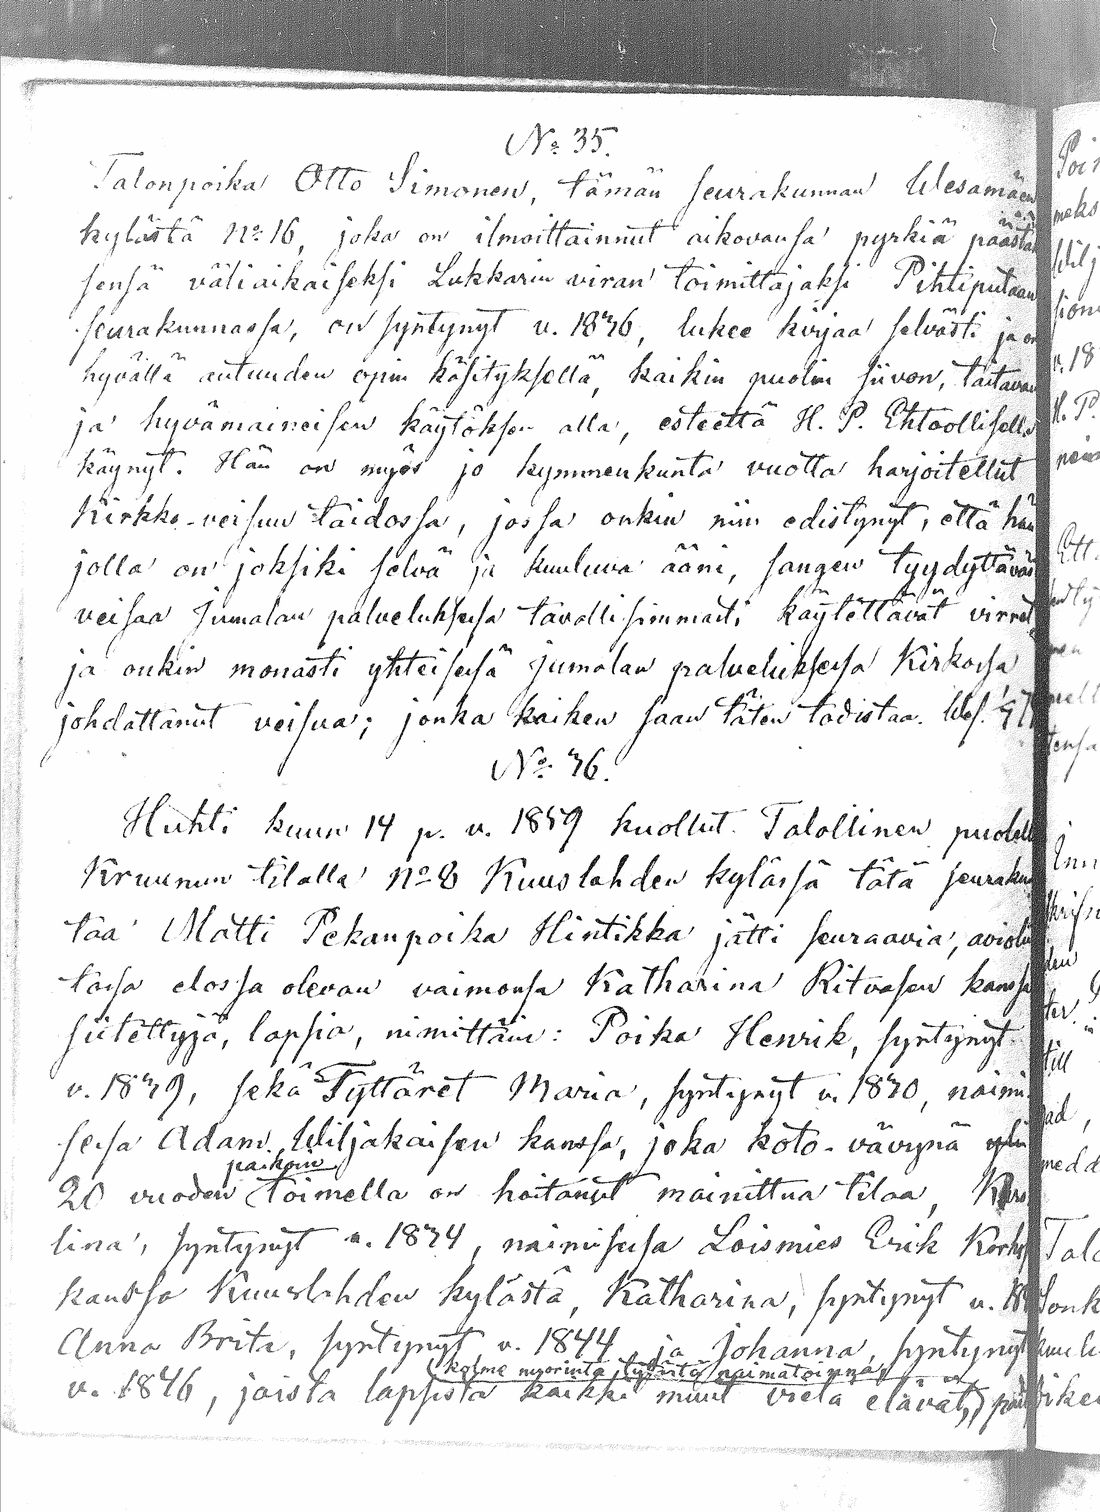 No 35.
Talonpoika Otto Simonen, tämän seurakunnan Wesamäen
kylästä No 16, joka on ilmoittainnut aikovansa pyrkiä päästä
sensä väliaikaiseksi Lukkarin viran toimittajaksi Pihtiputaan
seurakunnassa, on syntynyt v. 1836, lukee kirjaa selvästi ja on
hyvällä autuuden opin käsityksellä, kaikin puolin siivon, taitavan
ja hyvämaineisen käytöksen alla, esteettä H. P. Ehtoollisella
käynyt. Hän on myös jo kymmenkunta vuotta harjoitellut
Kirkko-veisuu taidossa, jossa onkin niin edistynyt, että hän
jolla on joksiki selvä ja kuuluva ääni, sangen tyydyttäväs
veisaa Jumalan palveluksessa tavallisimmasti käytettävät virret
ja onkin monasti yhteisessä Jumalan palveluksessa Kirkossa
johdattanut veisua; jonka kaiken saan täten todistaa. Wes.
No 36.
Huhti kuun 14 p. v. 1859 kuollut Talollinen puolella
Kruunun tilalla No 8 Kuuslahden kylässä tätä seuraku
taa Matti Pekanpoika Hintikka jätti seuraavia, aviolii
tossa elossa olevan vaimonsa Katharina Ritvasen kanssa
siitettyjä, lapsia, nimittäin: Poika Henrik, syntynyt
v. 1839, sekä Tyttäret Maria, syntynyt v. 1830, naimi
sessa Adam Wiljakaisen kanssa, joka koto-vävynä
paikoin
20 vuoden toimella on hoitanut mainittua tilaa, Karo
lina, syntynyt v. 1834, naimisessa Loismies Erik Korho
kanssa Kuuslahden kylästä, Katharina, syntynyt v. 18
Anna Brita, syntynyt v. 1844 ja Johanna, syntynyt
(kolme nuorinta tytärtä naimatoinna,
v. 1846, joista lapsista kaikki muut vielä elävät,)